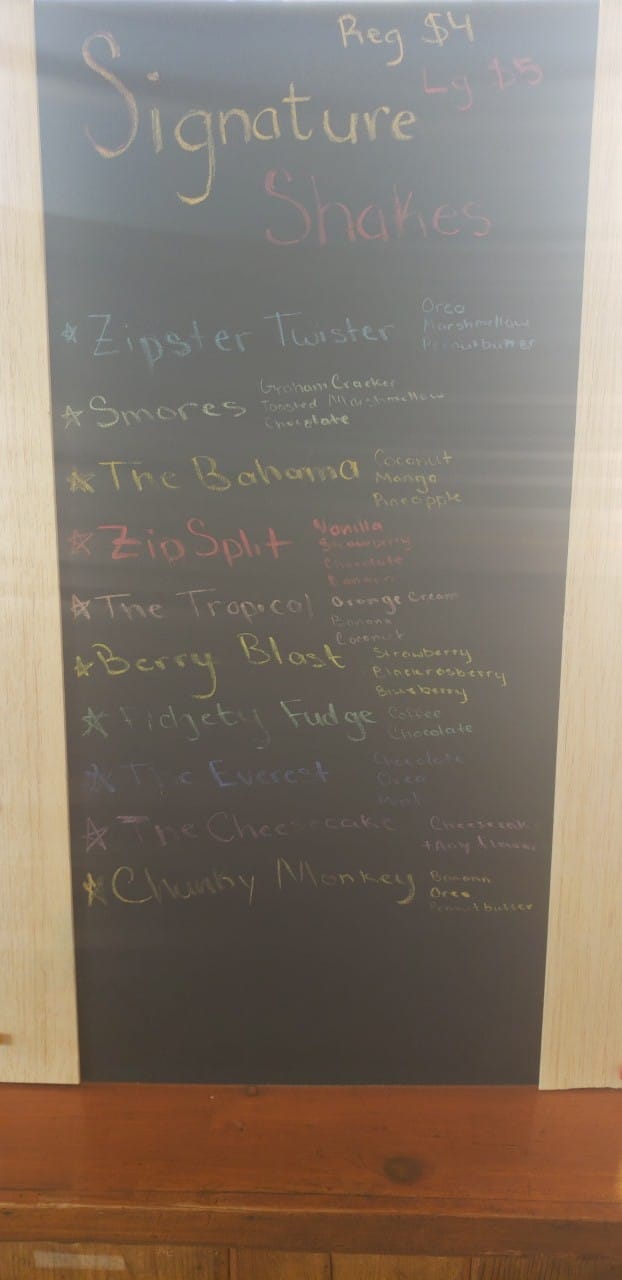 Reg $4
Lg $5
Signature
Shakes
Zipster Twister
Oreo
Marshmellow
Peanutbutter
Smores
Graham Cracker
Toasted Marshmellow
Chocolate
The Bahama
Coconut
Mango
Pineapple
Zip Split
Vanilla
Strawberry
Chocolate
Banana
The Tropical
Orange Cream
Banana
Coconut
Berry Blast
Strawberry
Blackrasberry
Blueberry
Fidgety Fudge
Coffee
Chocolate
The Everest
Chocolate
Oreo
Mint
The Cheesecake
Cheesecake
+Any Flavor
Chunky Monkey
Banana
Oreo
Peanutbutter